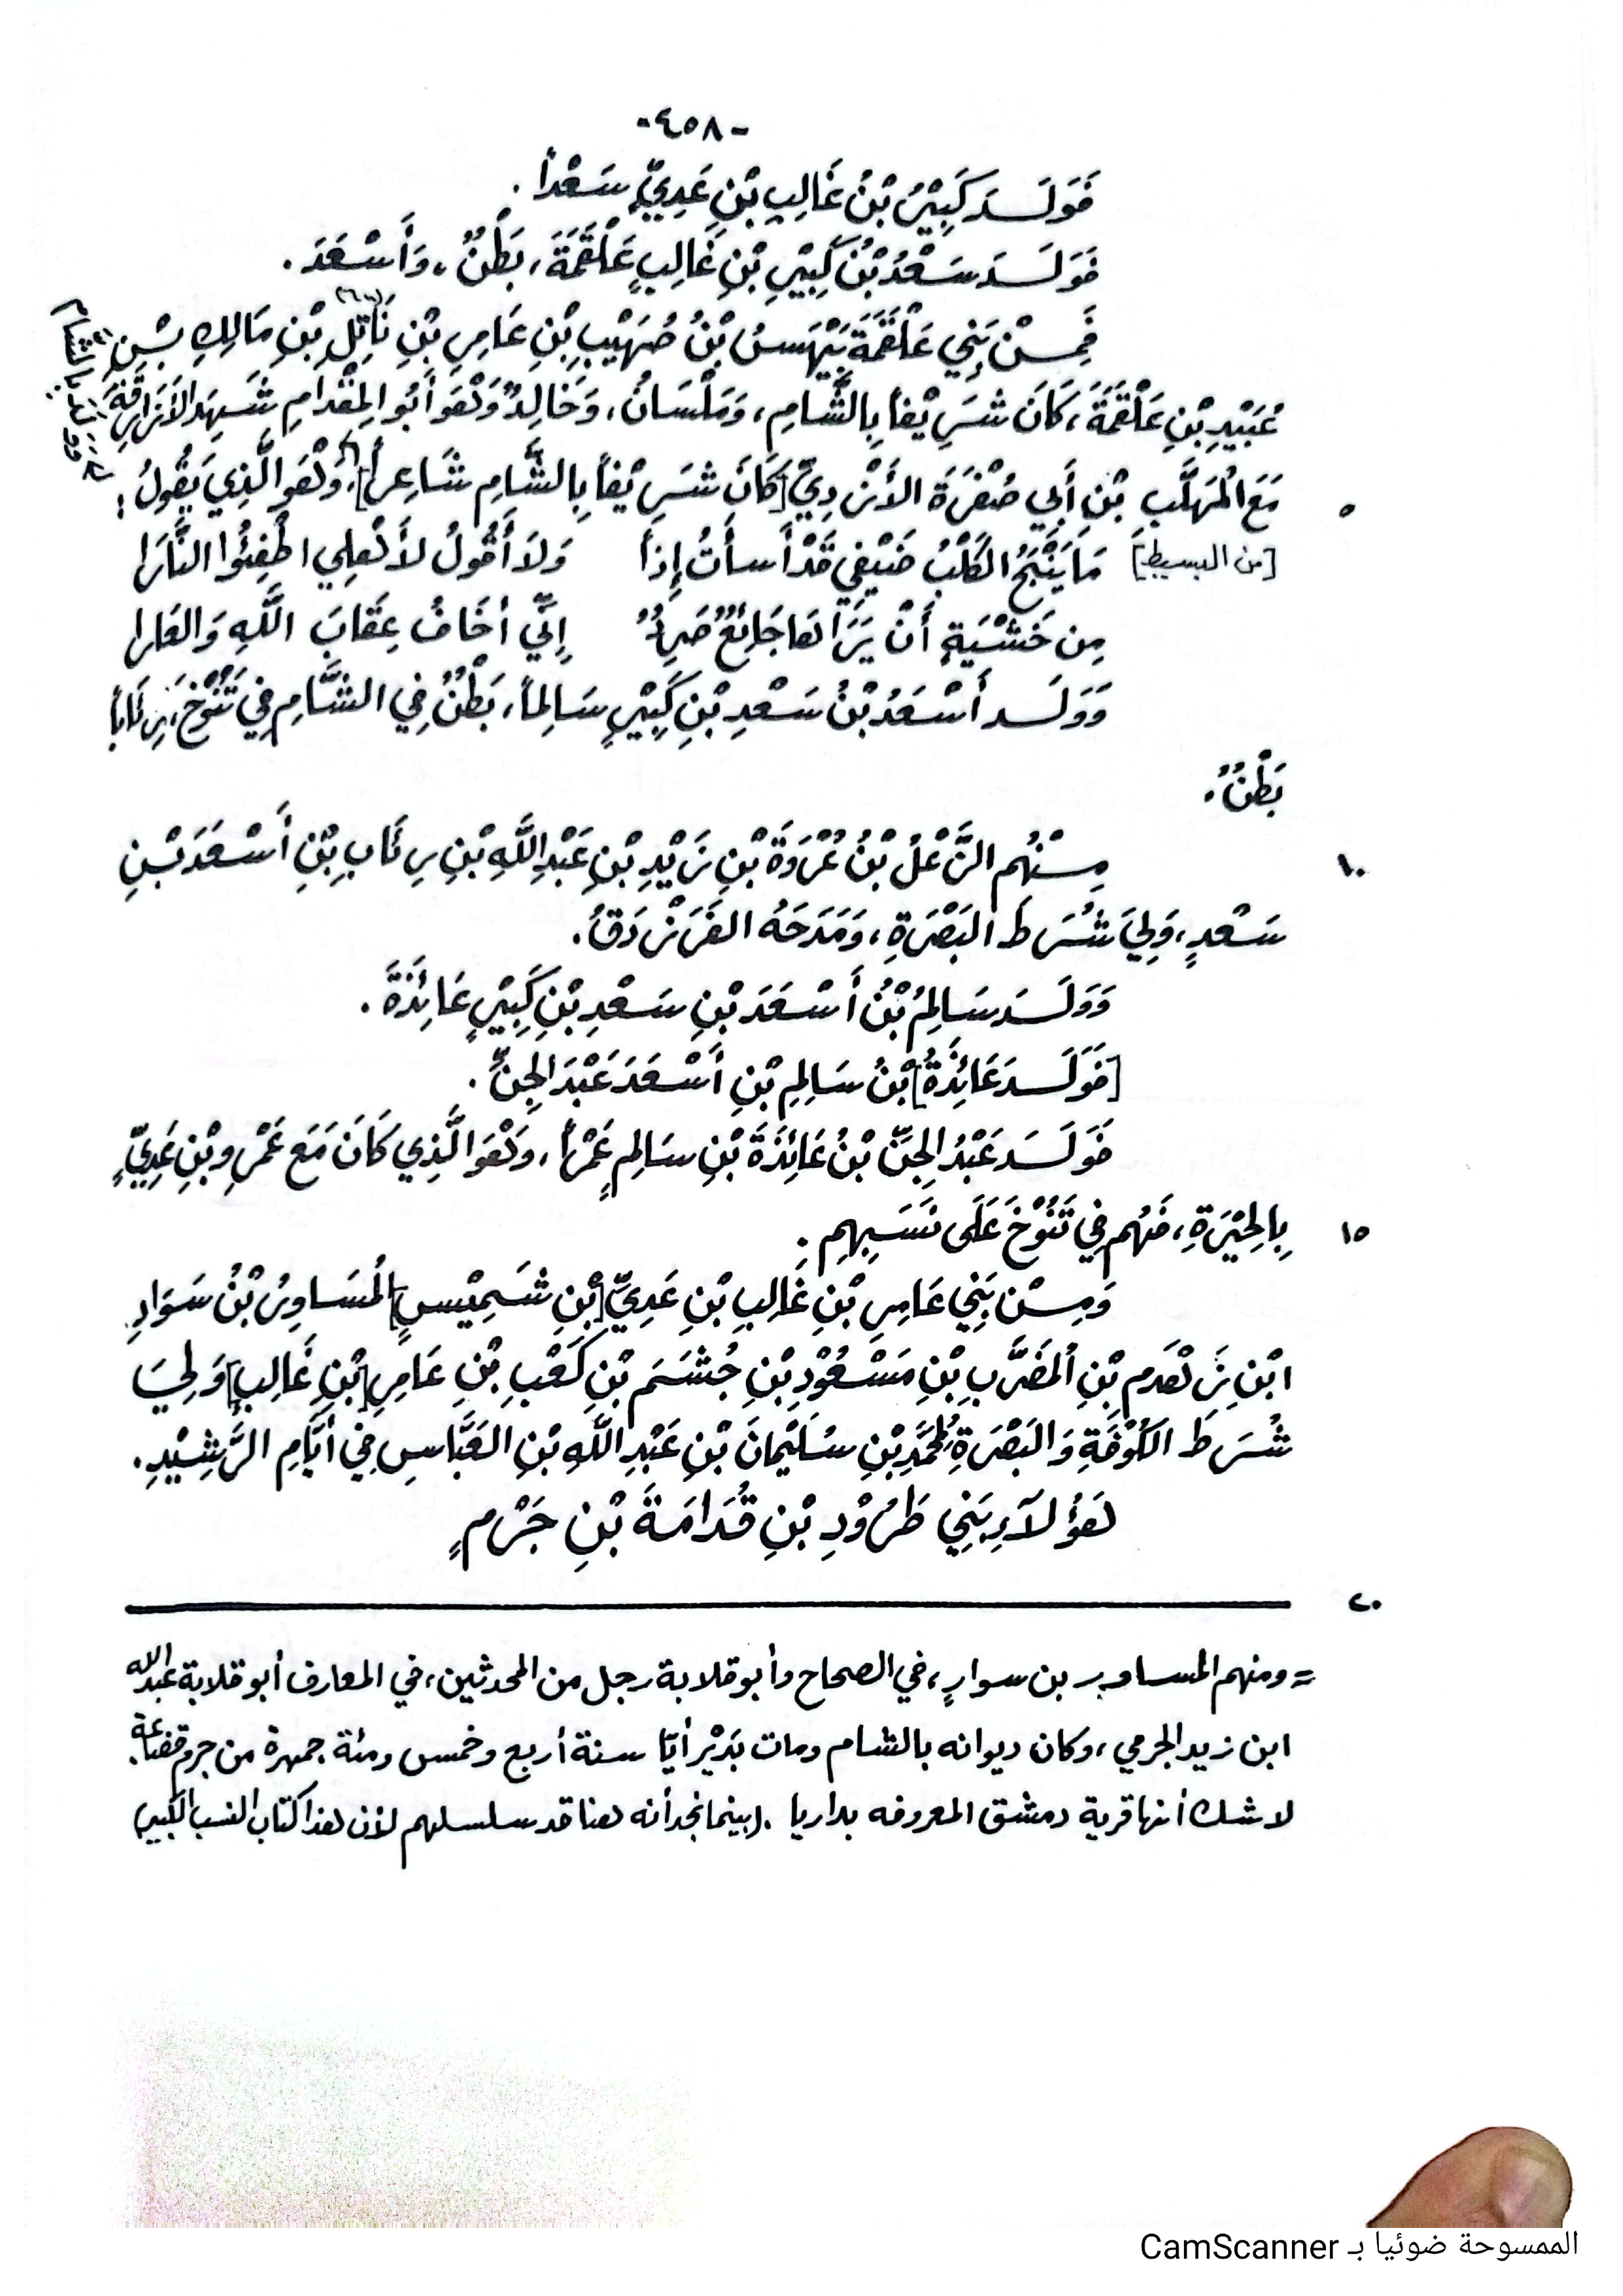 -٤٥٨-
فَوَلَدَ كَبِيْرُ بْنُ غَالِبِ بْنِ عَدِيٍّ سَعْداً .
فَوَلَدَ سَعْدُ بْنُ كَبِيْرِ بْنِ غَالِبٍ عَلْقَمَةَ، بَطْنٌ، وَأَسْعَدَ .
فَمِنْ بَنِي عَلْقَمَةَ بَيْهَسُ بْنُ صُهَيْبِ بْنِ عَامِرِ بْنِ نَاتِلِ بْنِ مَالِكِ بْنِ
عُبَيْدِ بْنِ عَلْقَمَةَ، كَانَ شَرِيْفاً بِالشَّامِ، وَمَلْسَانُ، وَخَالِدٌ وَهُوَ أَبُو المِقْدَامِ شَهِدَ الأَزَارِقَةَ
مَعَ المُهَلَّبِ بْنِ أَبِي صُفْرَةَ الأَزْدِيِّ [كَانَ شَرِيْفاً بِالشَّامِ شَاعِراً]، وَهُوَ الَّذِي يَقُولُ:
٥
[من البسيط] مَا يَنْبَحُ الكَلْبُ ضَيْفِي قَدْ أَسأْتُ إِذاً وَلاَ أَقُولُ لأَهْلِي اطْفِئُوا النَّارَا
مِن خَشْيَةِ أَنْ يَرَاهَا جَائِعٌ صَرِدٌ إِنِّي أخَافُ عِقَابَ اللَّهِ وَالعَارا
وَوَلَد أَسْعَدُ بْنُ سَعْدِ بْنِ كَبِيْرٍ سَالِماً، بَطْنٌ فِي الشَّامِ فِي تَنُوْخَ، رِئَاباً
بَطْنٌ.
مِنْهُم الزَّعْلُ بْنُ عُرْوَةَ بْنِ زَيْدِ بْنِ عَبْدِ اللَّهِ بْنِ رِئَابِ بْنِ أَسْعَدَ بْنِ
١٠
سَعْدٍ، وَلِيَ شُرَطَ البَصْرَةِ، وَمَدَحَهُ الفَرَزْدَقُ.
وَوَلَدَ سَالِمُ بْنُ أَسْعَدَ بْنِ سَعْدِ بْنِ كَبِيْرٍ عَائِذَةَ .
[فَوَلَدَ عَائِذَةُ] بْنُ سَالِمِ بْنِ أَسْعَدَ عَبْدَ الجِنِّ .
فَوَلَدَ عَبْدُ الجِنِّ بْنُ عَائِذَةَ بْنِ سَالِمٍ عَمْراً، وَهُوَ الَّذِي كَانَ مَعَ عَمْرِو بْنِ عَدِيٍّ
بِالحِيْرَةِ، فَهُم فِي تَنُوْخَ عَلَى نَسَبِهِمِ .
١٥
وَمِنْ بَنِي عَامِرِ بْنِ غَالِبِ بْنِ عَدِيِّ [بْنِ شَمِيْسٍ] المُسَاوِرُ بْنُ سَوَادِ
ابْنِ زَهْدَمِ بْنِ المُضَرَّبِ بْنِ مَسْعُوْدِ بْنِ جُشَمَ بْنِ كَعْبِ بْنِ عَامِرِ [بْنِ غَالِبٍ] وَلِيَ
شُرَطَ الكُوْفَةِ وَالبَصْرَةِ لِمُحَمَّدِ بْنِ سُلَيْمَانَ بْنِ عَبْدِ اللَّهِ بْنِ العَبَّاسِ فِي أَيَّامِ الرَّشِيْدِ.
هَؤُلاَءِ بَنِي طَرُوْدِ بْنِ قُدَامَةَ بْنِ جَرْمٍ
٢٠
= ومنهم المساور بن سوارٍ، في الصحاح وأبو قلابة رجل من المحدثين، في المعارف أبو قلابة عبد الله
ابن زيد الجرمي، وكان ديوانه بالشام ومات بَدَيْر أيّا سنة أربع وخمس ومئة جمهرة من جرم قضاعة.
لا شك أنها قرية دمشق المعروفه بداريا . (بينما نجد أنه هنا قد سلسلهم لأن هذا كتاب النسب الكبير)
الممسوحة ضوئيا بـ CamScanner